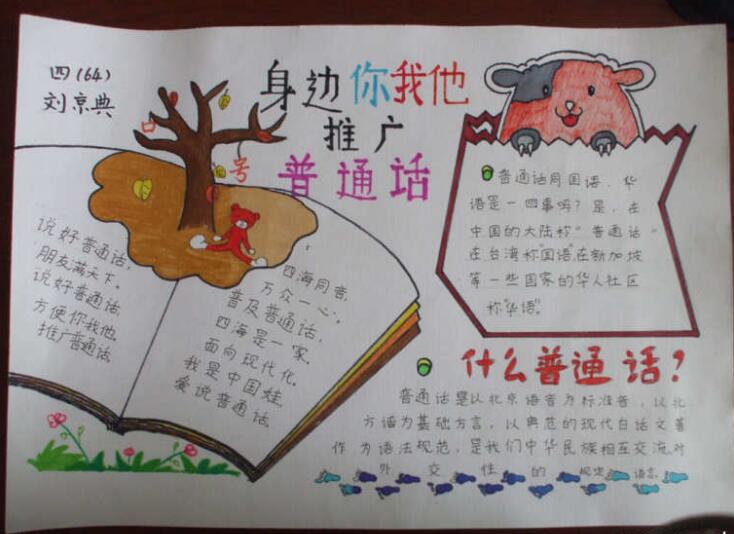 四(64)
刘京典
身边你我他
推广
普通话
口
号
说好普通话,
朋友满天下。
说好普通话,
方便你我他。
推广普通话。
四海同音,
万众一心。
普及普通话,
四海是一家。
面向现代化。
我是中国娃
爱说普通话。
普通话同国语、华
语是一回事吗?是,在
中国的大陆称“普通话”
在台湾称“国语”在新加坡
等一些国家的华人社区
称“华语”。
什么普通话?
普通话是以北京语音为标准音,以北
方话为基础方言,以典范的现代白话文著
作为语法规范,是我们中华民族相互交流对
外交性的规定语言。